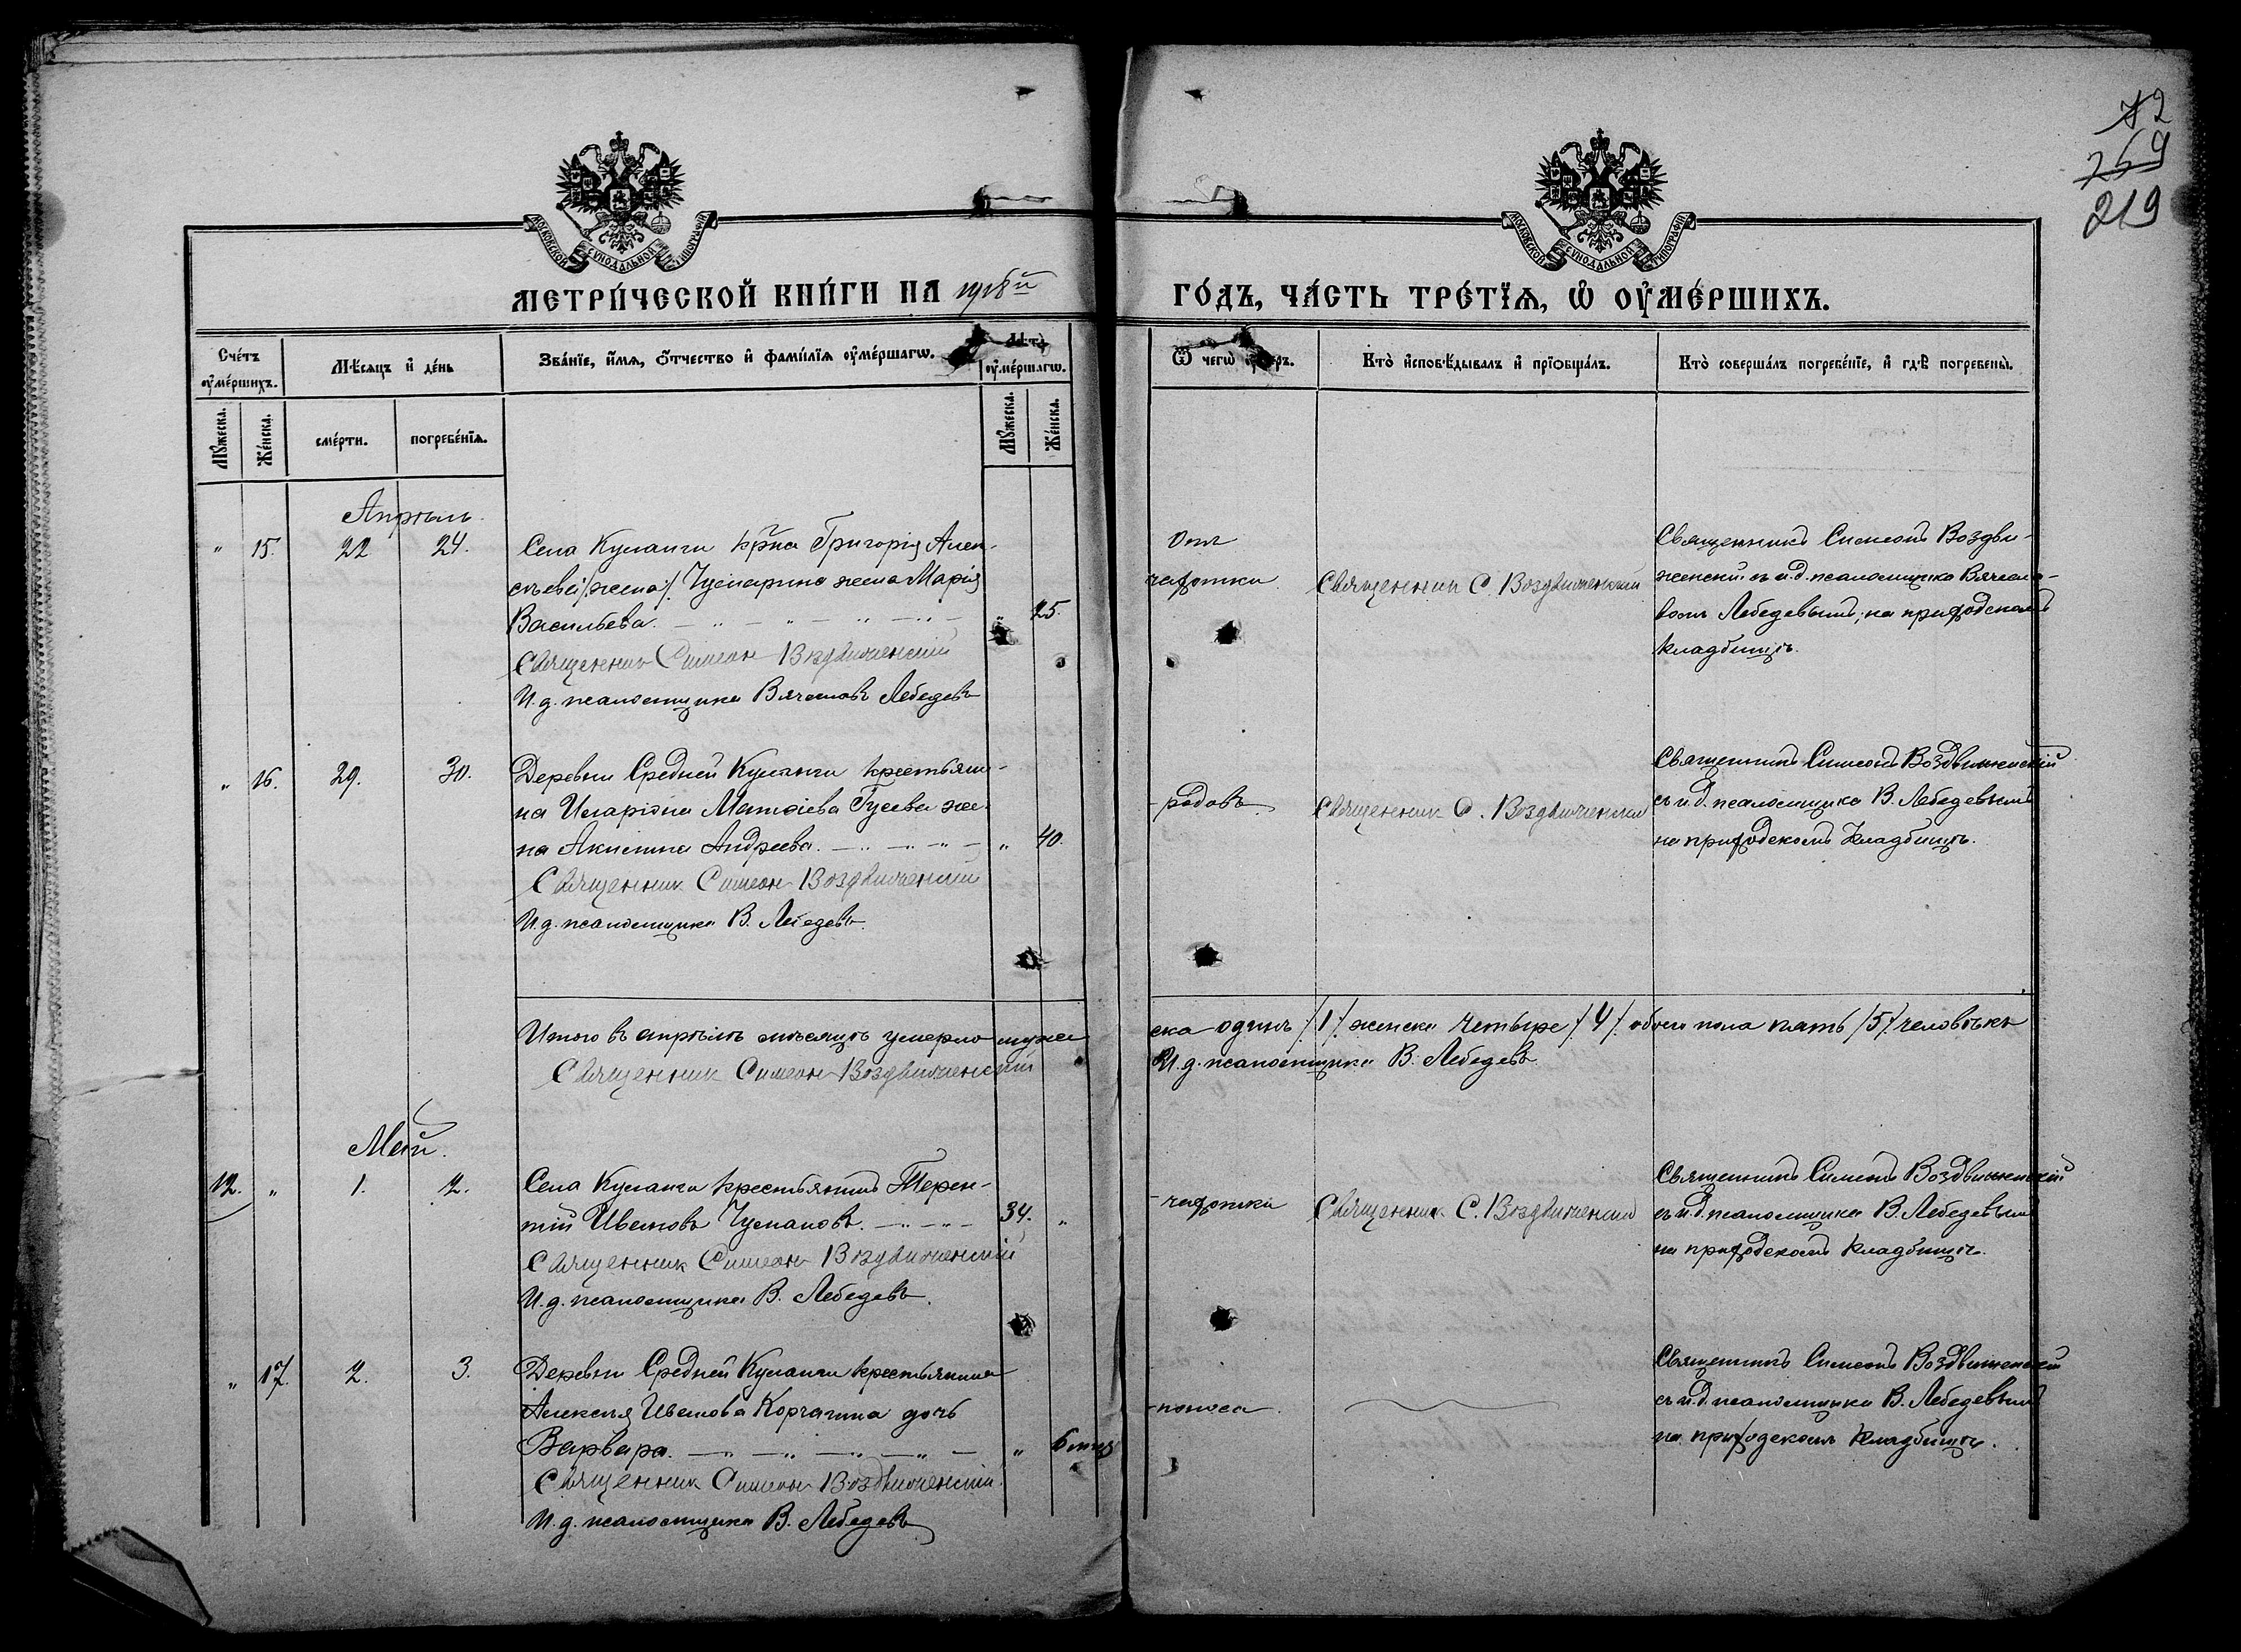 12
269
219
МОСКОВСКОЙ СѴНОДАЛЬНОЙ ТИПОГРАФІИ
МОСКОВСКОЙ СѴНОДАЛЬНОЙ ТИПОГРАФІИ
МЕТРИ́ЧЕСКОЙ КНИ́ГИ НА 1918й
ГО́ДЪ, ЧА́СТЬ ТРЕ́ТЇѦ, Ѡ҆ ОУ҆МЕ́РШИХЪ.
Сче́тъ оу҆ме́ршихъ.
Мѣ́сяцъ и҆ де́нь
Зва́нїе, и҆́мя, ѻ҆́тчество и҆ фами́лїя оу҆ме́ршагѡ.
Лѣ́та оу҆ме́ршагѡ.
Ѿ чегѡ̀ у҆́меръ.
Кто̀ и҆сповѣ́дывалъ и҆ прїѡбща́лъ.
Кто̀ соверша́лъ погребе́нїе, и҆ гдѣ̀ погребены̀.
Мꙋ́жеска.
Же́нска.
сме́рти.
погребе́нїя.
Мꙋ́жеска.
Же́нска.
Апрѣль.
" 15. 22 24.
Села Куланги кр҃на Григорія Алек-
сѣева /жена/. Чумарина жена Марія
Васильева. " 25.
Священник Симеон Воздвиженский
И. д. псаломщика Вячеслав Лебедев
Отъ
чахотки
Священник С. Воздвиженский
Священникъ Симеонъ Воздви-
женскій съ и.д. псаломщика Вячесла-
вомъ Лебедевымъ, на приходскомъ
кладбищѣ.
" 16. 29. 30.
Деревни Средней Куланги крестьяни-
на Иларіона Матѳіева Гусева же-
на Акилина Андреева. " 40.
Священник Симеон Воздвиженский
И. д. псаломщика В. Лебедевъ.
родовъ
Священник С. Воздвиженский
Священникъ Симеонъ Воздвиженскій
съ и.д. псаломщика В. Лебедевымъ
на приходскомъ кладбищѣ.
Итого въ апрѣлѣ мѣсяцѣ умерло муже
ска одинъ /1/ женска четыре /4/. обоего пола пять /5/ человѣкъ
Священник Симеон Воздвиженский
И. д. псаломщика В. Лебедевъ
Май.
12. " 1. 2.
Села Куланги крестьянинъ Терен-
тій Ивановъ Чумаковъ. 34. "
Священник Симеон Воздвиженский
И. д. псаломщика В. Лебедевъ.
чахотки
Священник С. Воздвиженский
Священникъ Симеонъ Воздвиженскій
съ и.д. псаломщика В. Лебедевымъ
на приходскомъ кладбищѣ.
" 17. 2. 3.
Деревни Средней Куланги крестьянина
Алексѣя Иванова Корчагина дочь
Варвара. " 6 мцъ
Священник Симеон Воздвиженский
И. д. псаломщика В. Лебедевъ
поноса.
Священникъ Симеонъ Воздвиженскій
съ и.д. псаломщика В. Лебедевымъ
на приходскомъ кладбищѣ.